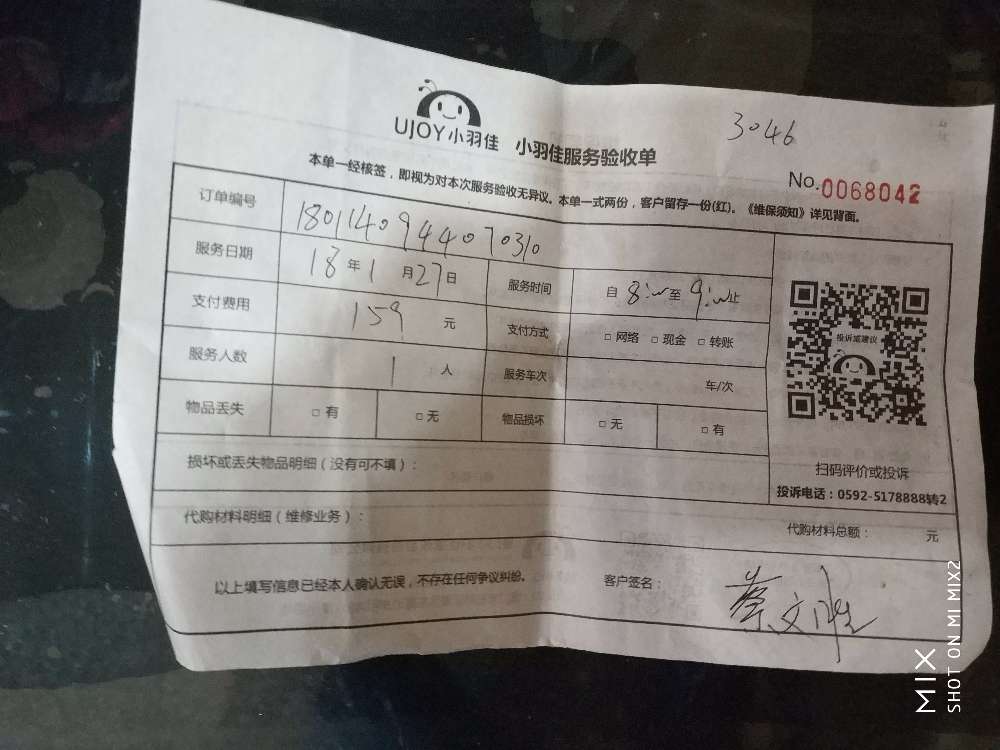 3046
UJOY小羽佳 小羽佳服务验收单
No.0068042
本单一经核签，即视为对本次服务验收无异议。本单一式两份，客户留存一份(红)。《维保须知》详见背面。
订单编号 1801140944070310
服务日期 18年1月27日 服务时间 自8:00至9:00止
支付费用 159 元 支付方式 □网络 □现金 □转账
服务人数 1 人 服务车次 车/次
物品丢失 □有 □无 物品损坏 □无 □有
投诉或建议
扫码评价或投诉
投诉电话：0592-5178888转2
损坏或丢失物品明细（没有可不填）：
代购材料明细（维修业务）： 代购材料总额： 元
以上填写信息已经本人确认无误，不存在任何争议纠纷。 客户签名： 蔡文胜
MIX
SHOT ON MI MIX2